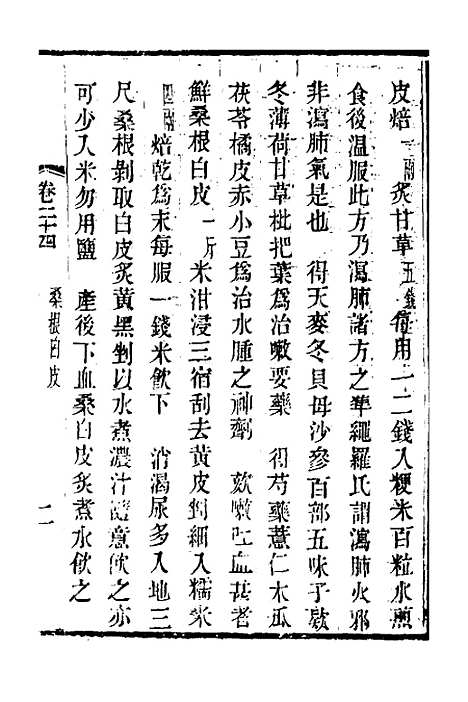 皮焙一兩炙甘草五錢每用一二錢入粳米百粒水煎
食後溫服此方乃瀉肺諸方之準繩羅氏謂瀉肺火邪
非瀉肺氣是也　得天麥冬貝母沙參百部五味子款
冬薄荷甘草枇把葉爲治嗽要藥　得芍藥薏仁木瓜
茯苓橘皮赤小豆爲治水腫之神劑　欬嗽吐血甚者
鮮桑根白皮一斤米泔浸三宿刮去黃皮剉細入糯米
四兩焙乾爲末每服一錢米飮下　消渴尿多入地三
尺桑根剝取白皮炙黃黑剉以水煮濃汁隨意飮之亦
可少入米勿用鹽　產後下血桑白皮炙煮水飮之
卷二十四　桑根白皮　二